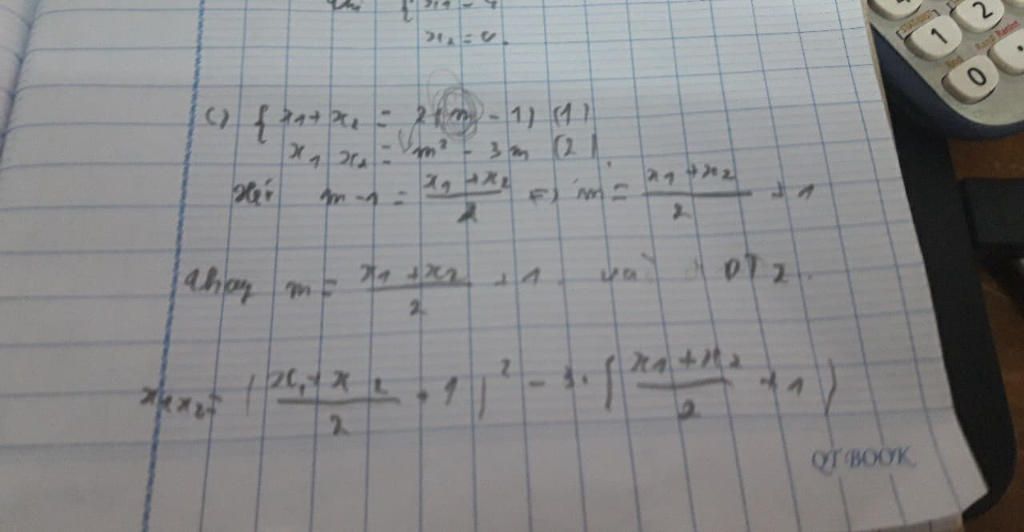 x₂ = 0.
c) { x₁ + x₂ = 2(m - 1) (1)
x₁ x₂ = m² - 3m (2).
m - 1 = (x₁ + x₂)/2 => m = (x₁ + x₂)/2 + 1
thay m = (x₁ + x₂)/2 + 1 vaò PT 2.
x₁x₂ = ((x₁ + x₂)/2 + 1)² - 3. ((x₁ + x₂)/2 + 1)
QT BOOK
1
2
0